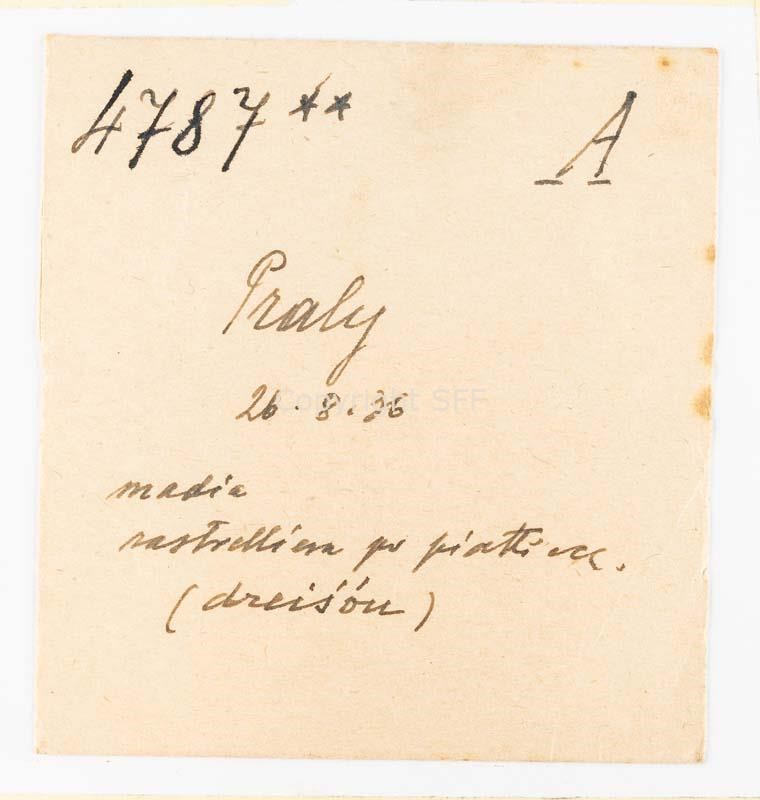 4787**
A
Praly
26.8.36
Copyright SFF
madia
rastrelliera pr piatti ecc.
(dreisóu)